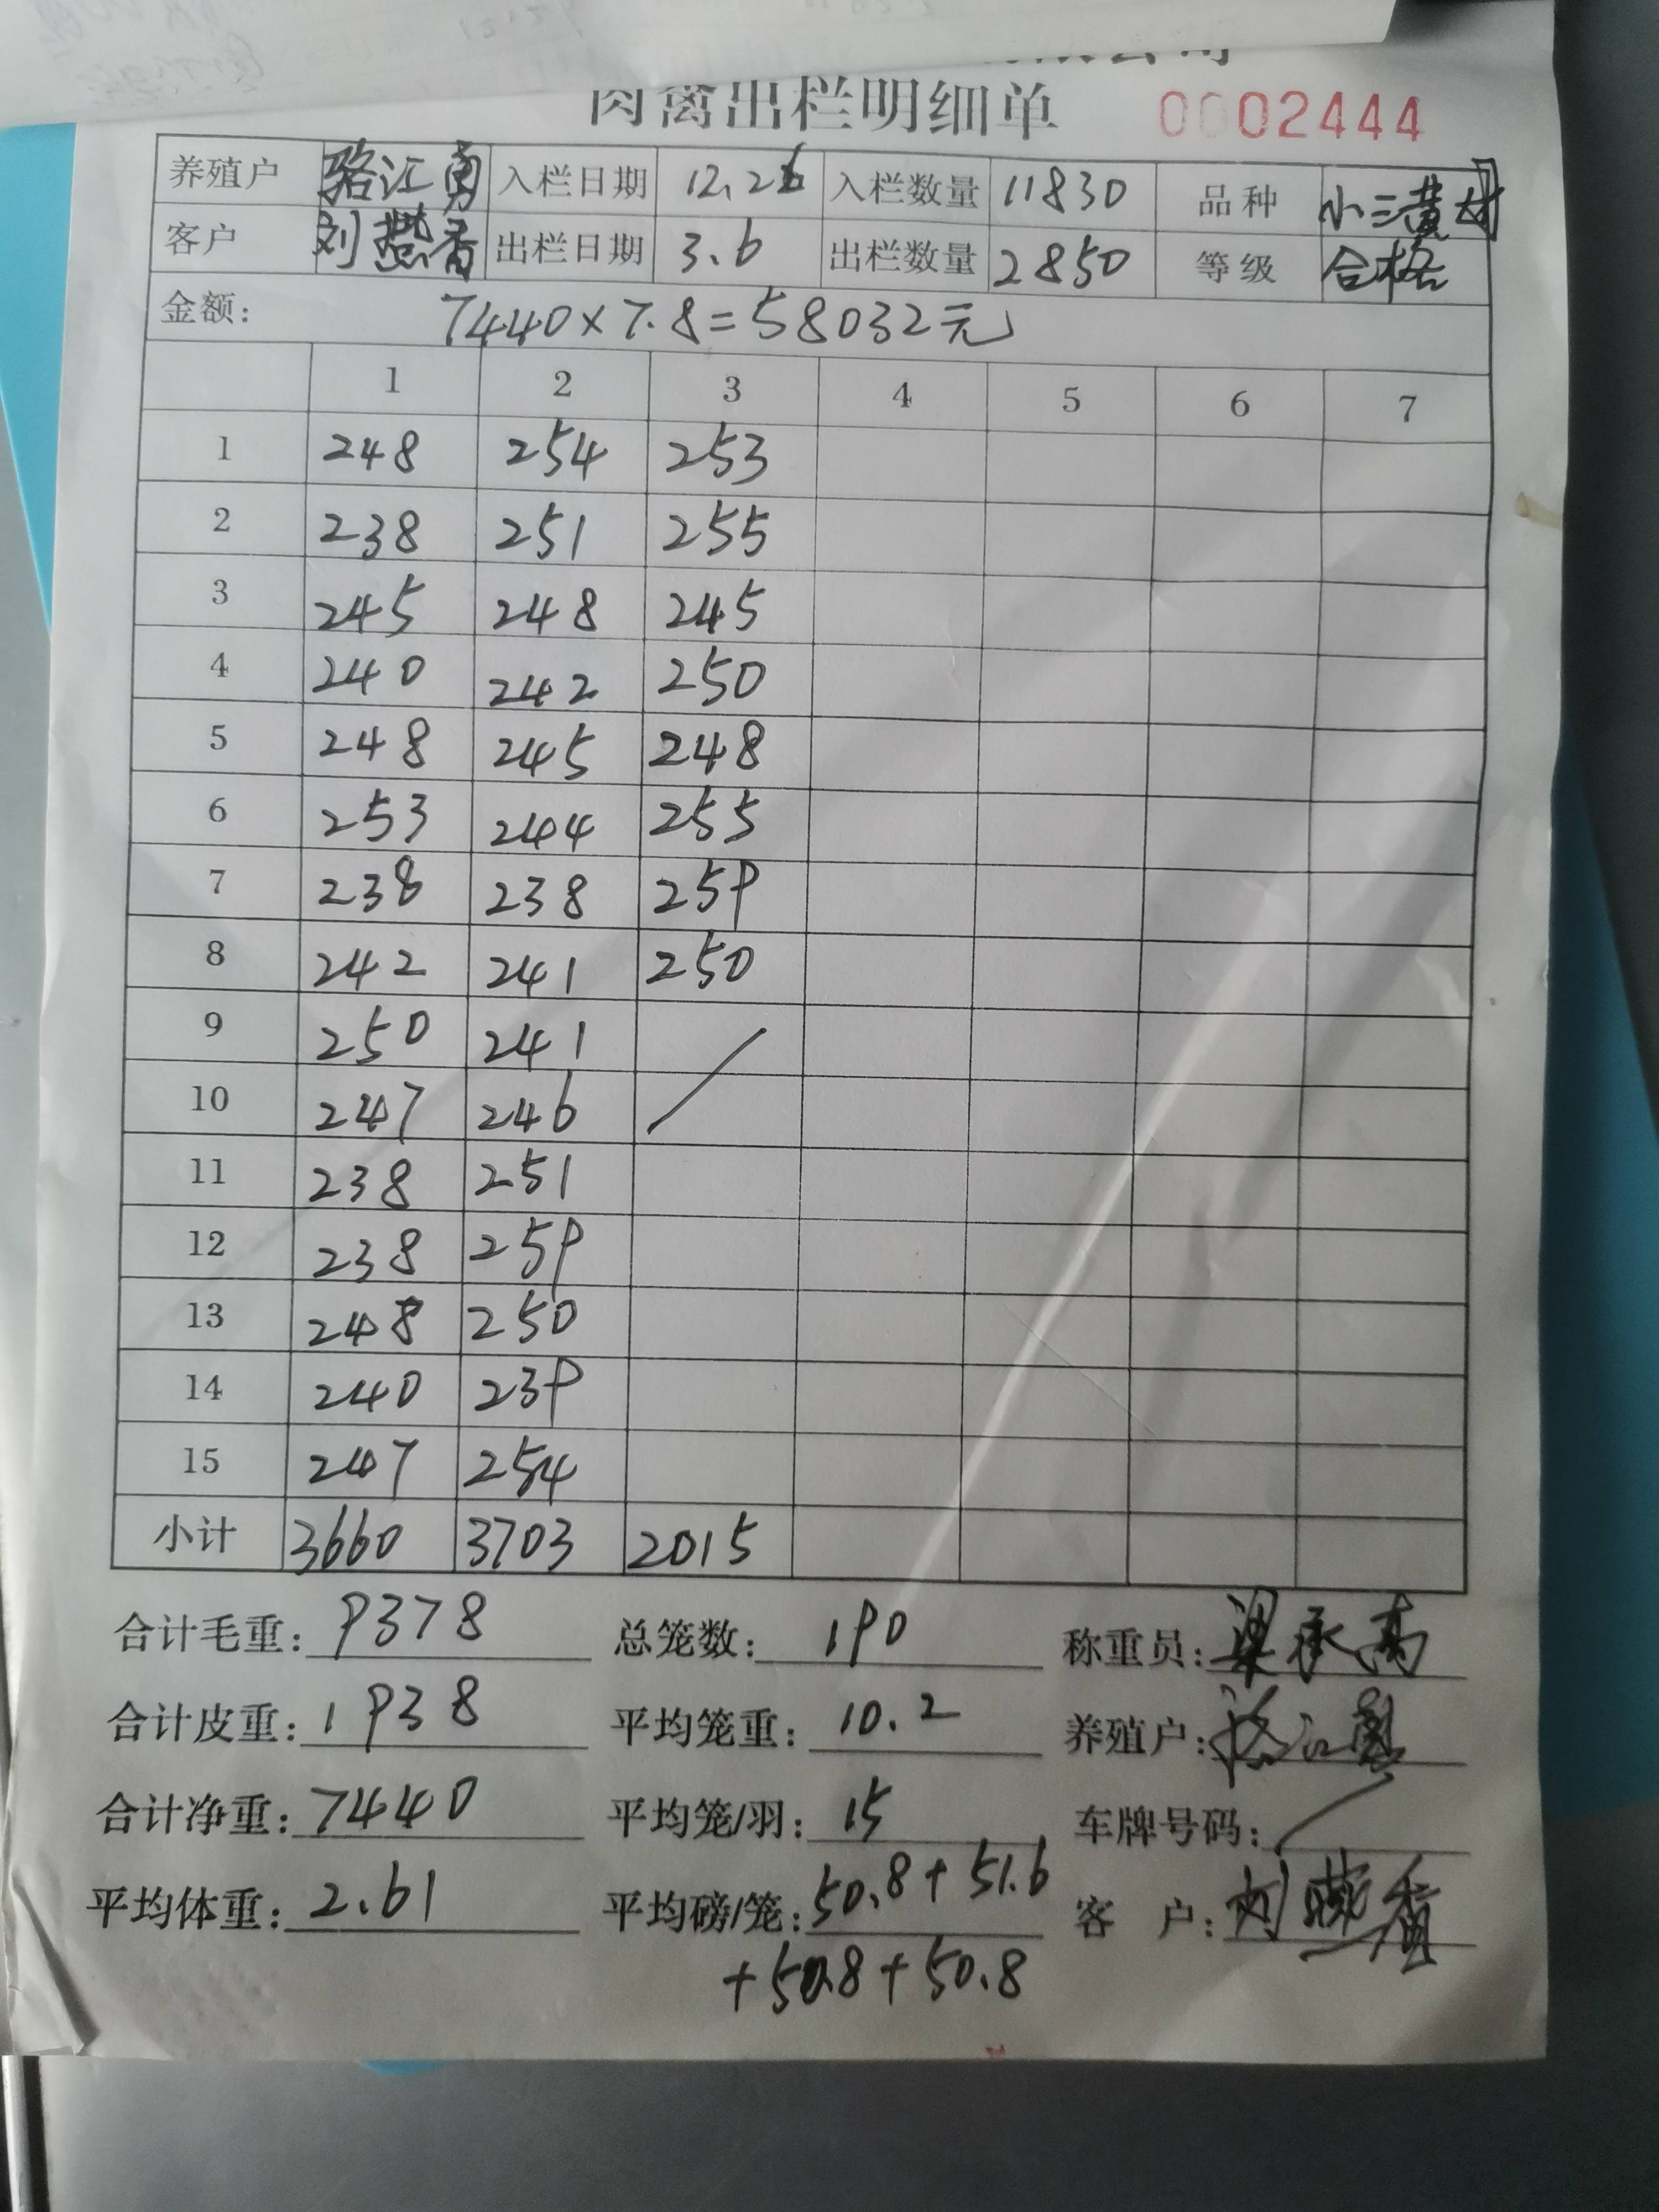 肉禽出栏明细单 0002444
养殖户 骆江勇 入栏日期 12.26 入栏数量 11830 品种 小三黄
客户 刘燕香 出栏日期 3.6 出栏数量 2850 等级 合格
金额: 7440×7.8=58032元
1 2 3 4 5 6 7
1 248 254 253
2 238 251 255
3 245 248 245
4 240 242 250
5 248 245 248
6 253 244 255
7 238 238 259
8 242 241 250
9 250 241
10 247 246
11 238 251
12 238 259
13 248 250
14 240 239
15 247 254
小计 3660 3703 2015
合计毛重: 9378 总笼数: 190 称重员: 梁承高
合计皮重: 1938 平均笼重: 10.2 养殖户: 骆江勇
合计净重: 7440 平均笼/羽: 15 车牌号码: /
平均体重: 2.61 平均磅/笼: 50.8+51.6 客 户: 刘燕香
+50.8+50.8